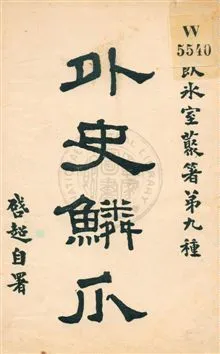 W
5540
飲冰室叢箸第九種
外史鱗爪
啓超自署